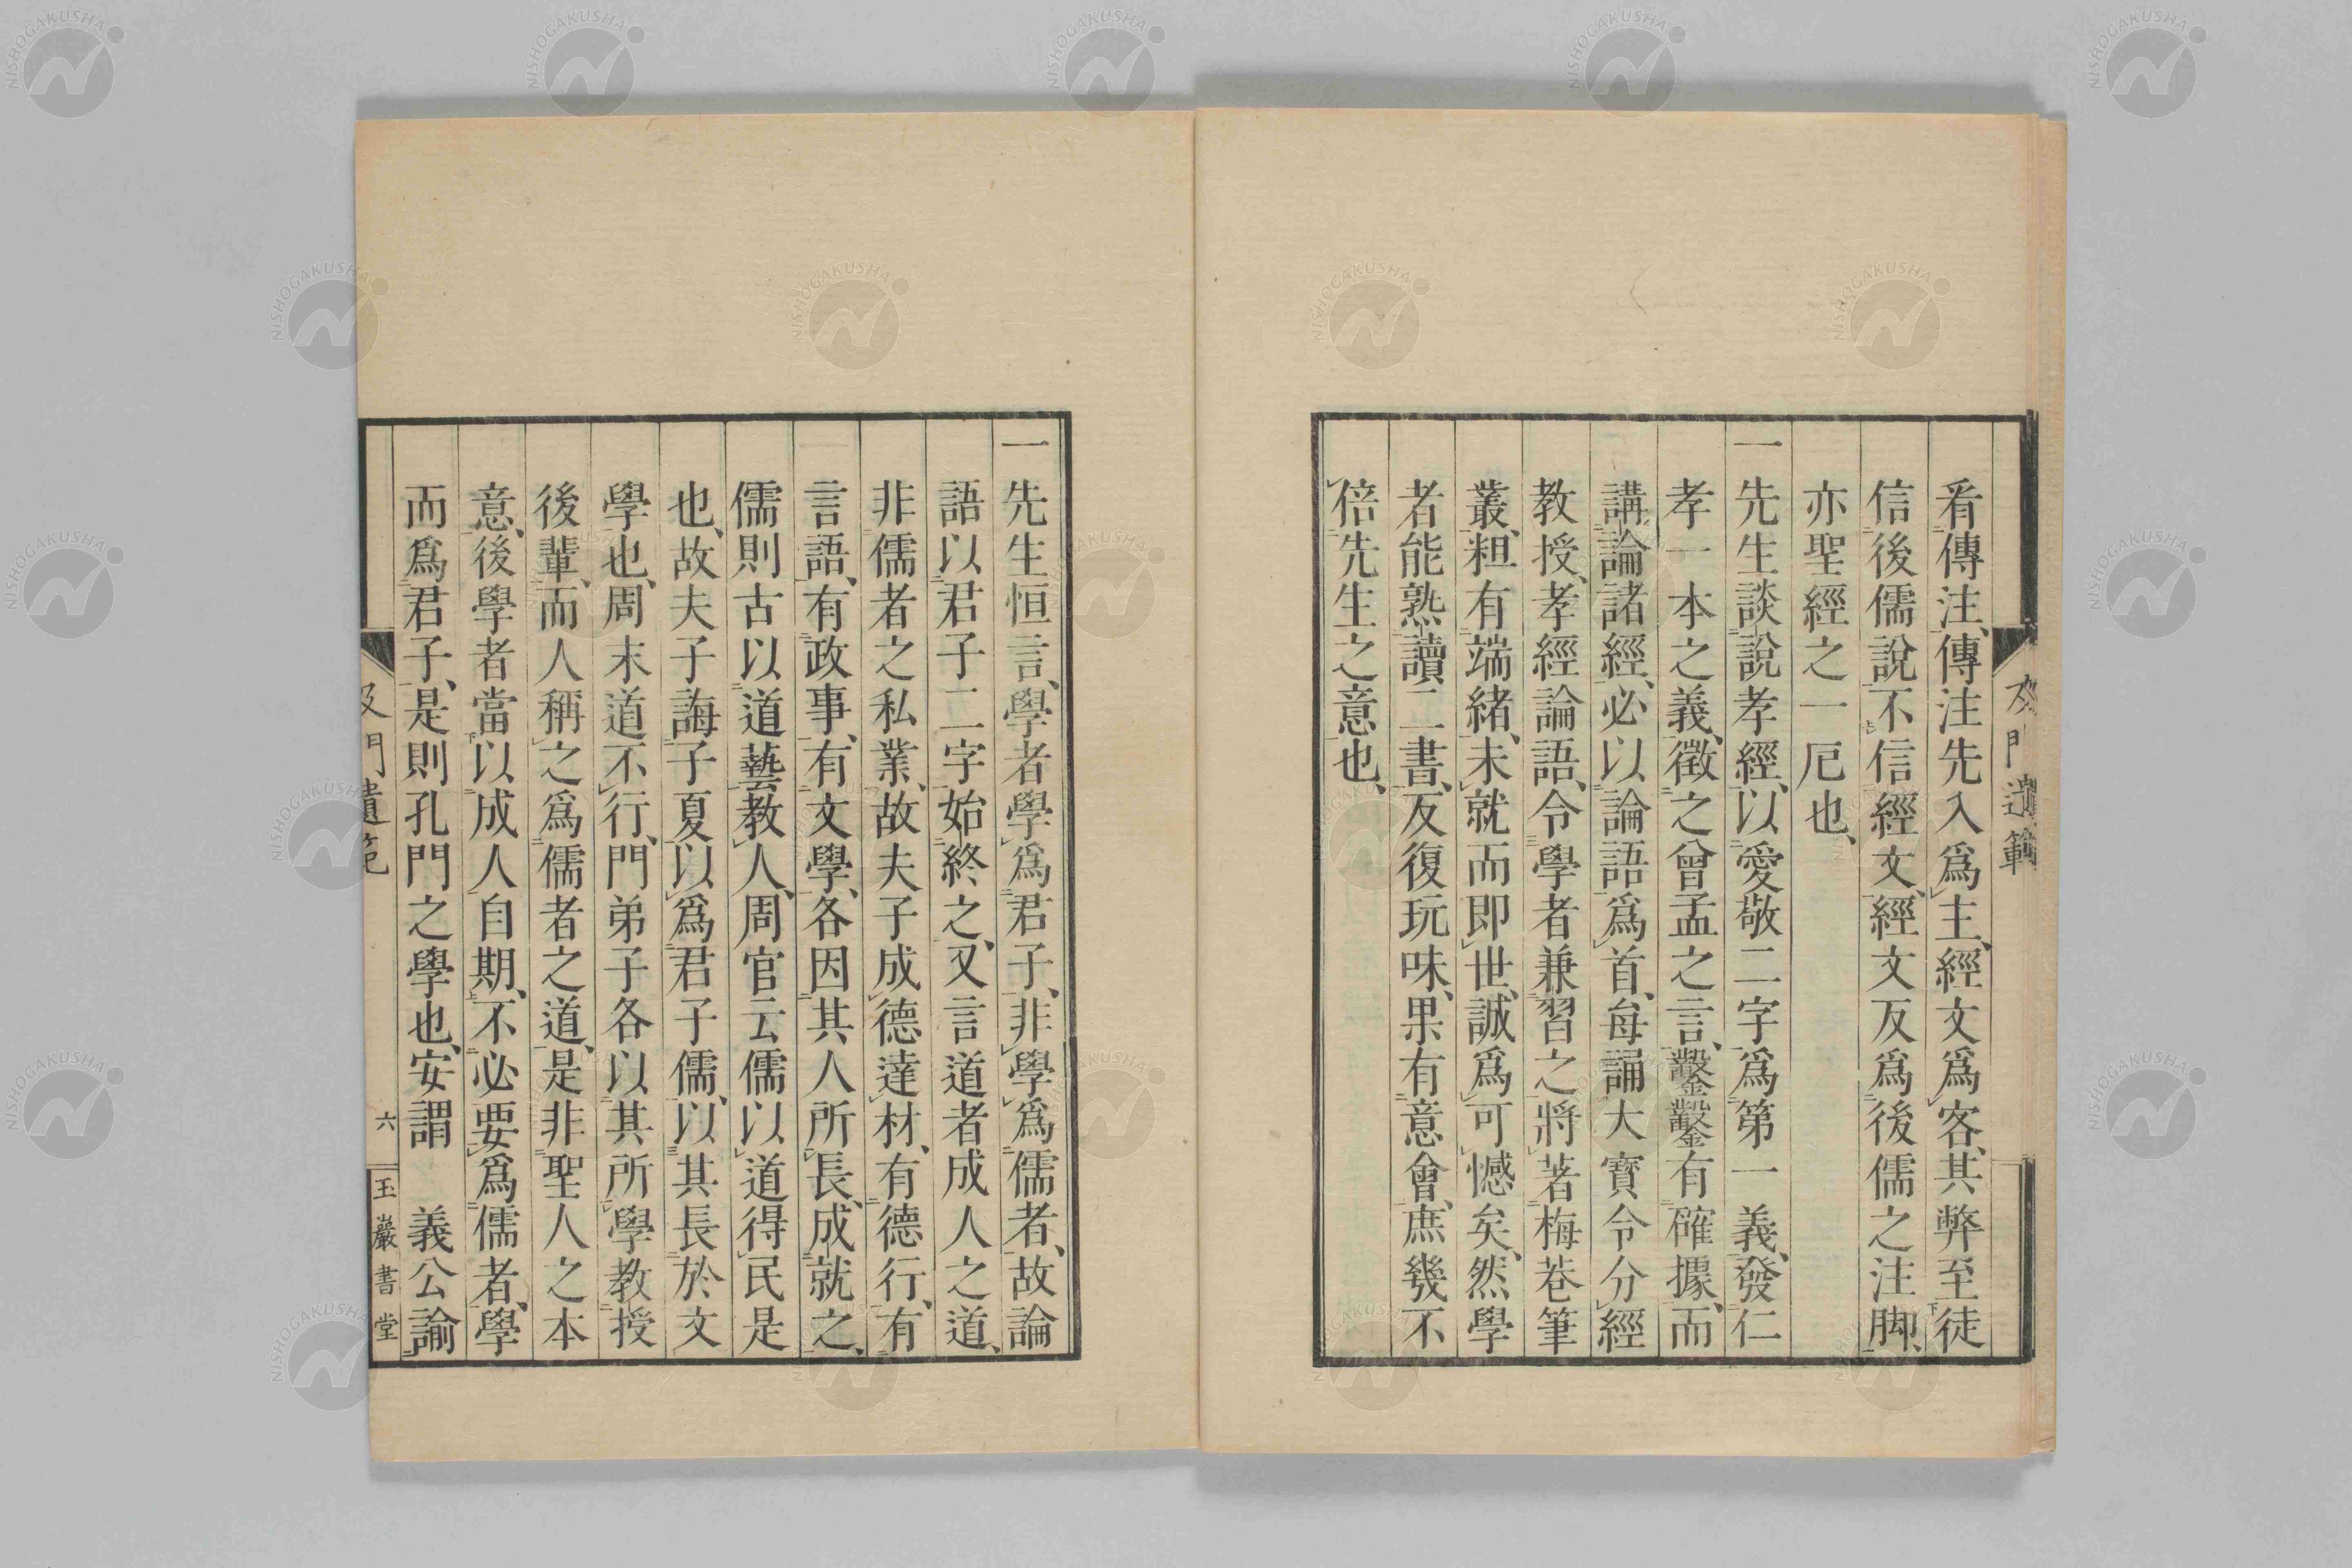 及門遺範
看傳注、傳注先入爲主、經文爲客、其弊至徒
信後儒說、不信經文、經文反爲後儒之注脚、
亦聖經之一厄也、
一先生談說孝經、以愛敬二字爲第一義、發仁
孝一本之義、徵之曾孟之言、鑿鑿有確據、而
講論諸經、必以論語爲首、每誦大寶令分經
教授、孝經論語、令學者兼習之、將著梅巷筆
叢、粗有端緒、未就而即世、誠爲可憾矣、然學
者能熟讀二書、反復玩味、果有意會、庶幾不
倍先生之意也、
一先生恒言、學者學爲君子、非學爲儒者、故論
語以君子二字始終之、又言道者成人之道、
非儒者之私業、故夫子成德達材、有德行、有
言語、有政事、有文學、各因其人所長、成就之、
儒則古以道藝教人、周官云儒以道得民是
也、故夫子誨子夏以爲君子儒、以其長於文
學也、周末道不行、門弟子各以其所學教授
後輩、而人稱之爲儒者之道、是非聖人之本
意、後學者當以成人自期、不必要爲儒者、學
而爲君子、是則孔門之學也、安謂　義公論
及門遺範
六
玉巖書堂
NISHOGAKUSHA